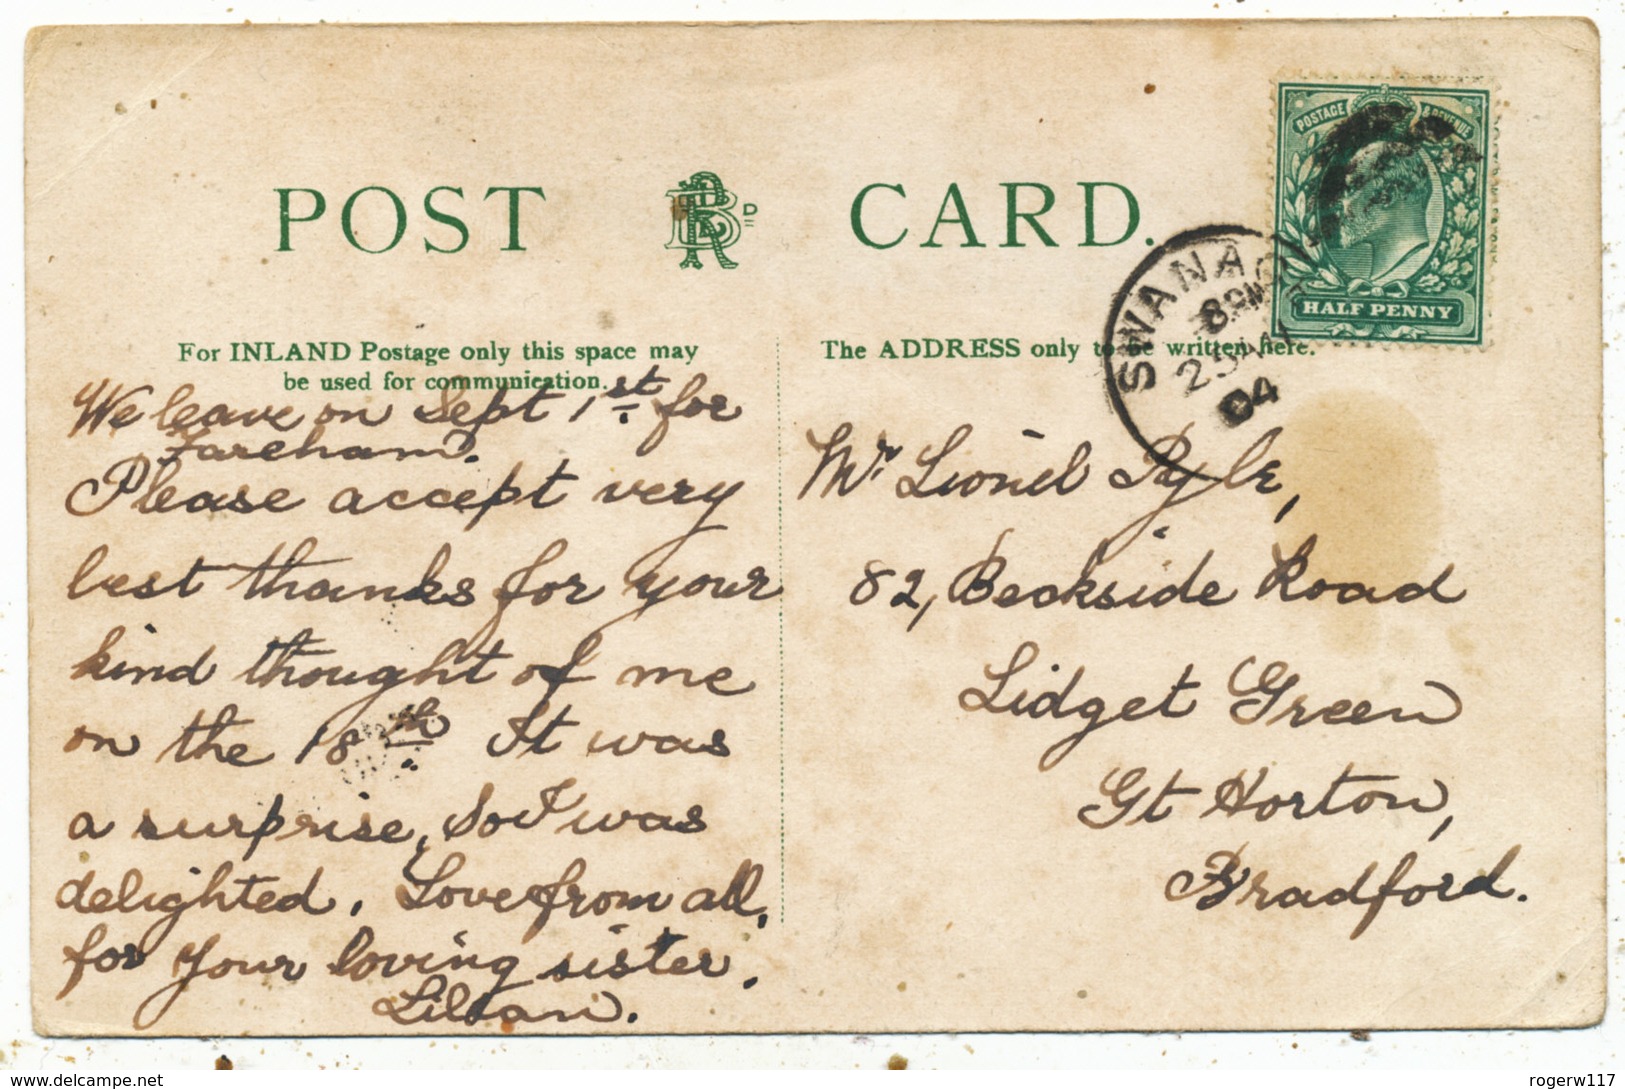 POST CARD.
RB D
POSTAGE & REVENUE
HALF PENNY
SWANAG
8 AM
04
For INLAND Postage only this space may
be used for communication.
The ADDRESS only to be written here.
We leave on Sept 1st. for
Fareham.
Please accept very
best thanks for your
kind thought of me
on the 18th. It was
a surprise, So I was
delighted. Love from all,
for Your loving sister.
Lilian.
Mr Lionel Pyle,
82, Beckside Road
Lidget Green
Gt Horton,
Bradford.
rogerw117